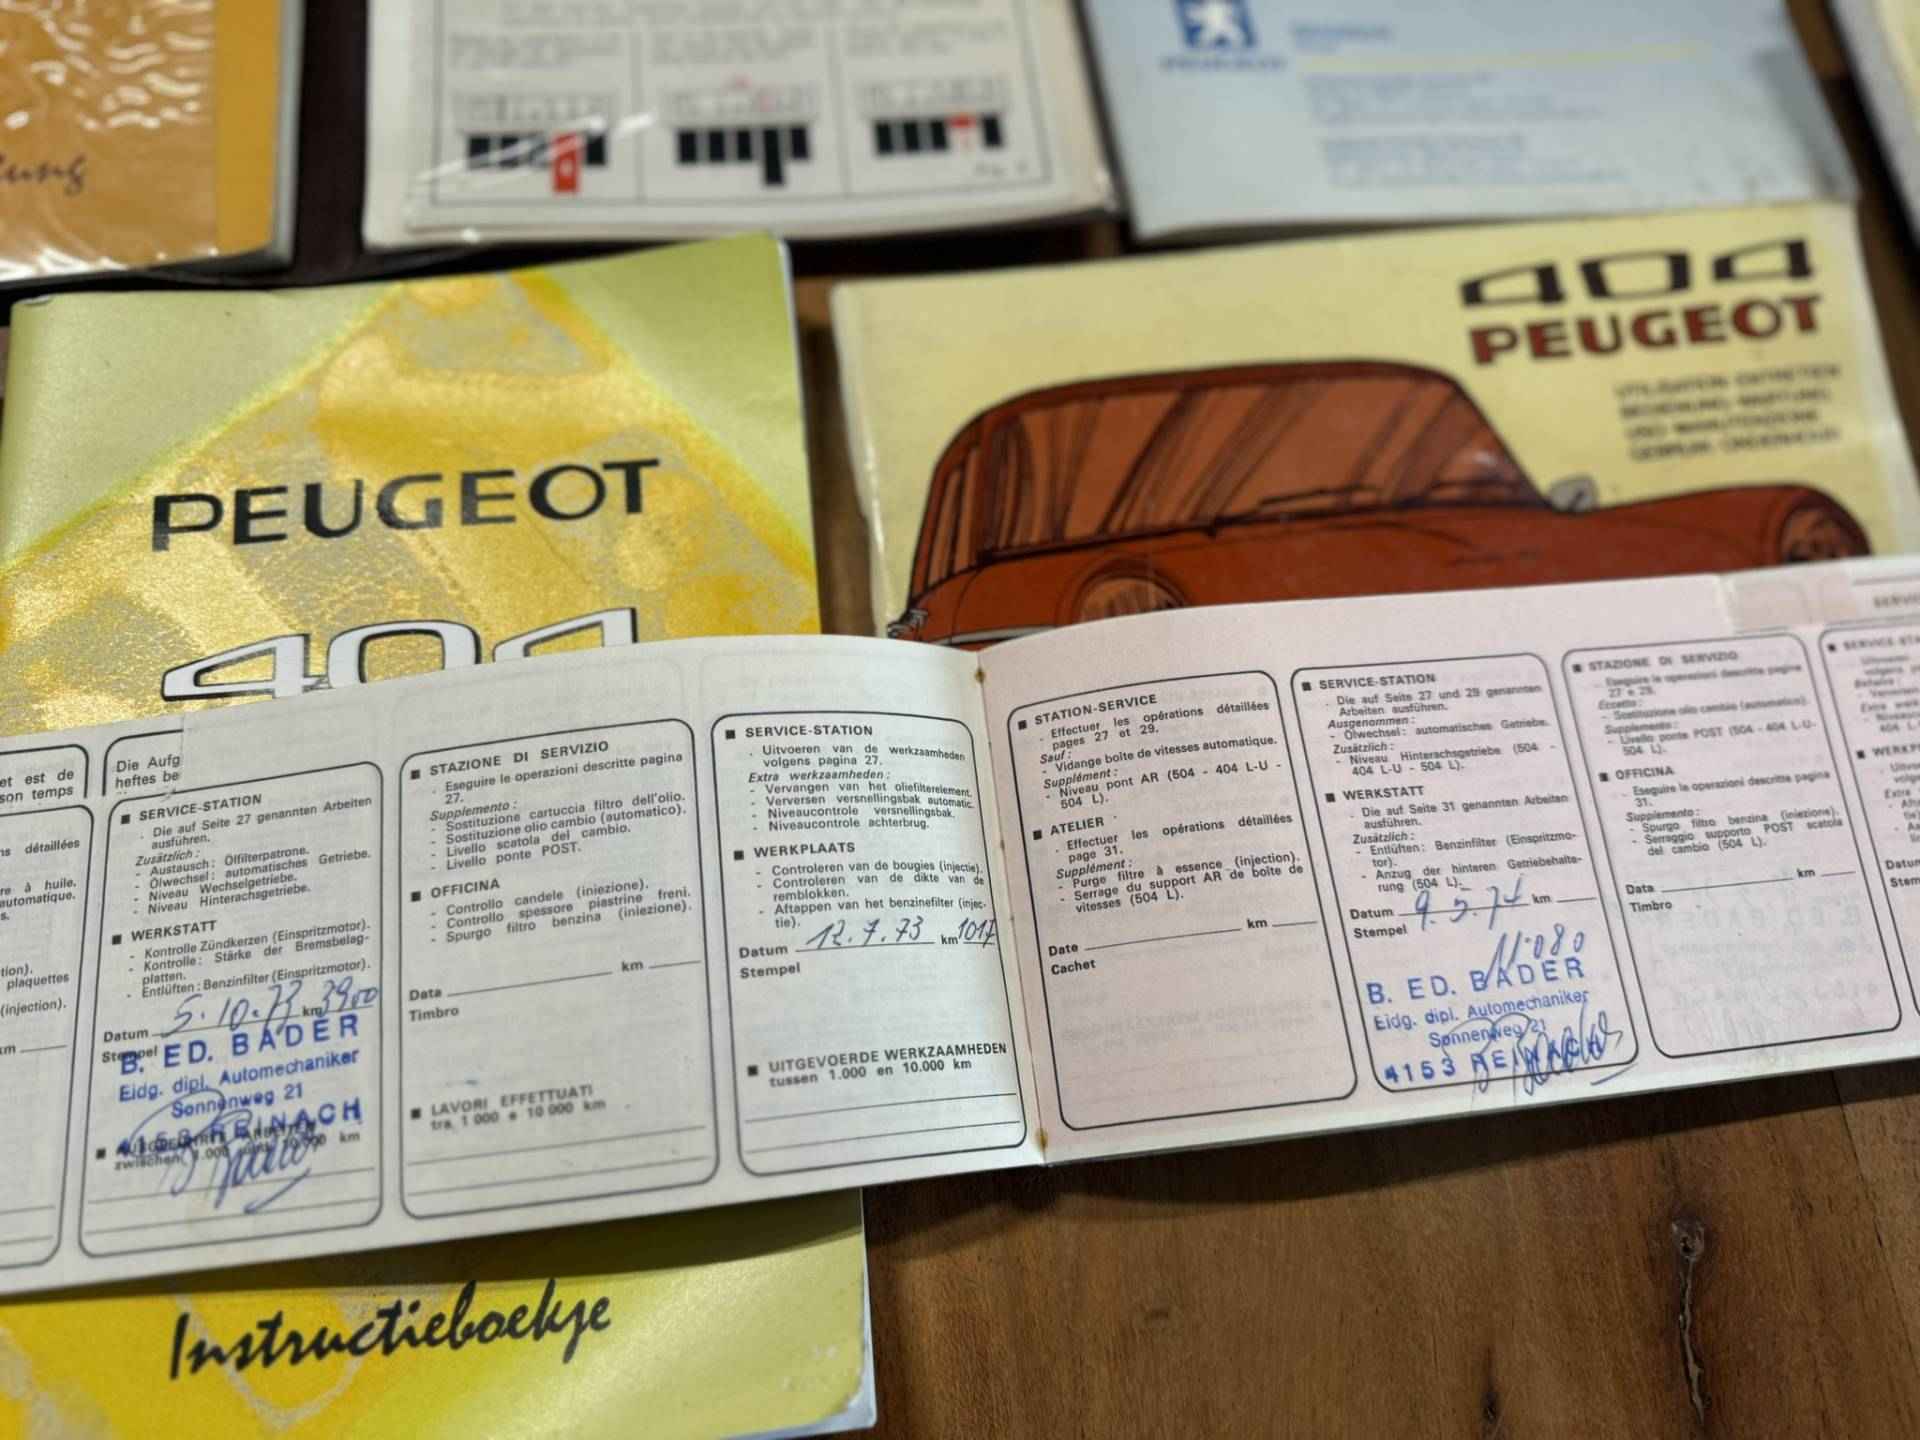 lung
PEUGEOT
PEUGEOT
404
404
PEUGEOT
UTILISATION ENTRETIEN
BEDIENUNG WARTUNG
USO MANUTENZIONE
GEBRUIK ONDERHOUD
et est de
son temps
ns détaillées
re à huile.
automatique.
s.
tion).
plaquettes
(injection).
km
Die Aufg
heftes be
■ SERVICE-STATION
. Die auf Seite 27 genannten Arbeiten
ausführen.
Zusätzlich:
- Austausch: Ölfilterpatrone.
- Ölwechsel: automatisches Getriebe.
- Niveau Wechselgetriebe.
- Niveau Hinterachsgetriebe.
■ WERKSTATT
- Kontrolle Zündkerzen (Einspritzmotor).
- Kontrolle: Stärke der Bremsbelag-
platten.
- Entlüften: Benzinfilter (Einspritzmotor).
Datum 5.10.73 km 3900
Stempel
B. ED. BADER
Eidg. dipl. Automechaniker
Sonnenweg 21
4153 REINACH
zwischen 1.000 und 10.000 km
■ STAZIONE DI SERVIZIO
. Eseguire le operazioni descritte pagina
27.
Supplemento:
- Sostituzione cartuccia filtro dell'olio.
- Sostituzione olio cambio (automatico).
- Livello scatola del cambio.
- Livello ponte POST.
■ OFFICINA
- Controllo candele (iniezione).
- Controllo spessore piastrine freni.
- Spurgo filtro benzina (iniezione).
Data km
Timbro
■ LAVORI EFFETTUATI
tra 1 000 e 10 000 km
■ SERVICE-STATION
. Uitvoeren van de werkzaamheden
volgens pagina 27.
Extra werkzaamheden:
- Vervangen van het oliefilterelement.
- Verversen versnellingsbak automatic.
- Niveaucontrole versnellingsbak.
- Niveaucontrole achterbrug.
■ WERKPLAATS
- Controleren van de bougies (injectie).
- Controleren van de dikte van de
remblokken.
- Aftappen van het benzinefilter (injec-
tie).
Datum 12.7.73 km 1017
Stempel
■ UITGEVOERDE WERKZAAMHEDEN
tussen 1.000 en 10.000 km
■ STATION-SERVICE
. Effectuer les opérations détaillées
pages 27 et 29.
Sauf:
- Vidange boîte de vitesses automatique.
Supplément:
- Niveau pont AR (504 - 404 L-U -
504 L).
■ ATELIER
. Effectuer les opérations détaillées
page 31.
Supplément:
- Purge filtre à essence (injection).
- Serrage du support AR de boîte de
vitesses (504 L).
Date km
Cachet
■ SERVICE-STATION
. Die auf Seite 27 und 29 genannten
Arbeiten ausführen.
Ausgenommen:
- Ölwechsel: automatisches Getriebe.
Zusätzlich:
- Niveau Hinterachsgetriebe (504 -
404 L-U - 504 L).
■ WERKSTATT
. Die auf Seite 31 genannten Arbeiten
ausführen.
Zusätzlich:
- Entlüften: Benzinfilter (Einspritzmo-
tor).
- Anzug der hinteren Getriebehalte-
rung (504 L).
Datum 9.5.74 km
Stempel 11.080
B. ED. BADER
Eidg. dipl. Automechaniker
Sonnenweg 21
4153 REINACH
■ STAZIONE DI SERVIZIO
. Eseguire le operazioni descritte pagina
27 e 29.
Eccetto:
- Sostituzione olio cambio (automatico).
Supplemento:
- Livello ponte POST (504 - 404 L-U-
504 L).
■ OFFICINA
. Eseguire le operazioni descritte pagina
31.
Supplemento:
- Spurgo filtro benzina (iniezione).
- Serraggio supporto POST scatola
del cambio (504 L).
Data km
Timbro
Instructieboekje